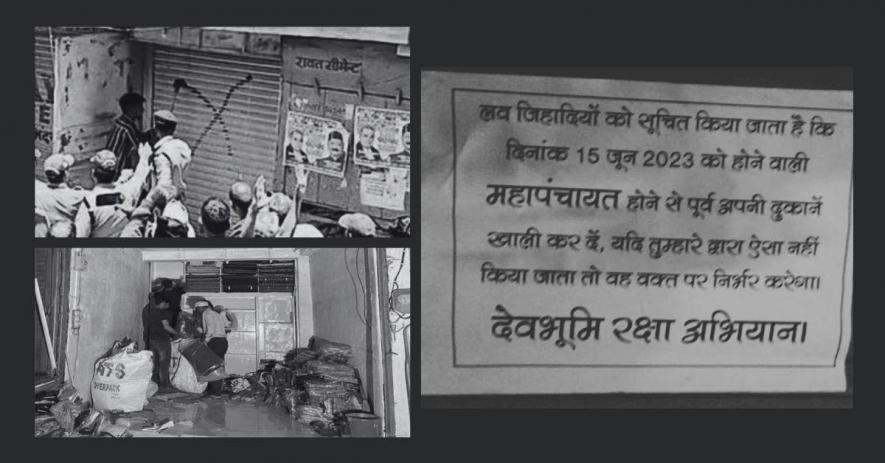 रावत सीमेन्ट
ATS
OVERPACK
लव जिहादियों को सूचित किया जाता है कि
दिनांक 15 जून 2023 को होने वाली
महापंचायत होने से पूर्व अपनी दुकानें
खाली कर दें, यदि तुम्हारे द्वारा ऐसा नहीं
किया जाता तो वह वक्त पर निर्भर करेगा।
देवभूमि रक्षा अभियान।